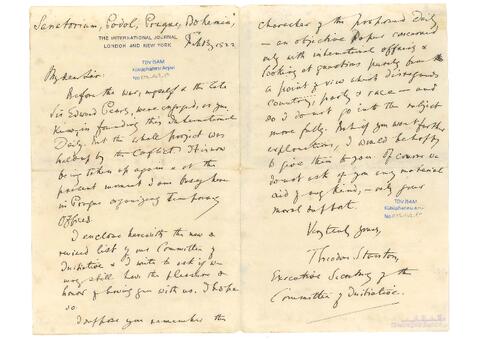 Sanatorium, Podol, Prague, Bohemia,
THE INTERNATIONAL JOURNAL
LONDON AND NEW YORK
Feb 13, 1922
TDV İSAM
Kütüphanesi Arşivi
No
My dear Sir:
Before the war, myself & the late
Sir Edward Pears, were engaged, as you
know, in founding this International
Daily. But the whole project was
held up by the conflict. It is now
being taken up again & at the
present moment I am busy here
in Prague organizing temporary
offices.
I enclose herewith the new &
revised list of our Committee of
Initiative & I write to ask if we
may still have the pleasure &
honor of having you with us. I hope
so.
I suppose you remember the
character of the proposed Daily
— an objective paper concerned
only with international affairs &
looking at questions purely from
a point of view which disregards
country, party & race — and
so I do not go into the subject
more fully. But if you want further
explanations, I would be happy
to give them to you. Of course we
do not ask of you any material
aid of any kind, — only your
moral support.
TDV İSAM
Kütüphanesi Arşivi
No
Very truly yours,
Theodore Stanton,
Executive Secretary of the
Committee of Initiative.